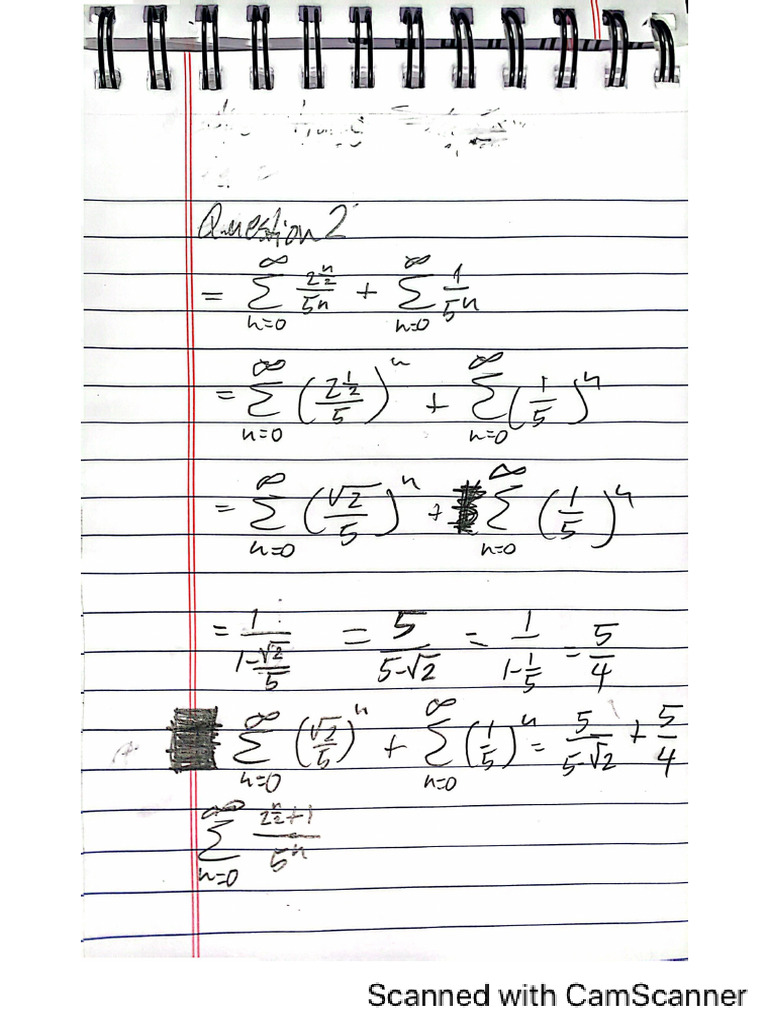 Question 2
= ∑_{n=0}^{∞} 2^{n/2}/5^n + ∑_{n=0}^{∞} 1/5^n
= ∑_{n=0}^{∞} (2^{1/2}/5)^n + ∑_{n=0}^{∞} (1/5)^n
= ∑_{n=0}^{∞} (√2/5)^n + ∑_{n=0}^{∞} (1/5)^n
= 1/(1-√2/5) = 5/(5-√2) = 1/(1-1/5) = 5/4
∑_{n=0}^{∞} (√2/5)^n + ∑_{n=0}^{∞} (1/5)^n = 5/(5-√2) + 5/4
∑_{n=0}^{∞} (2^{n/2}+1)/5^n
Scanned with CamScanner